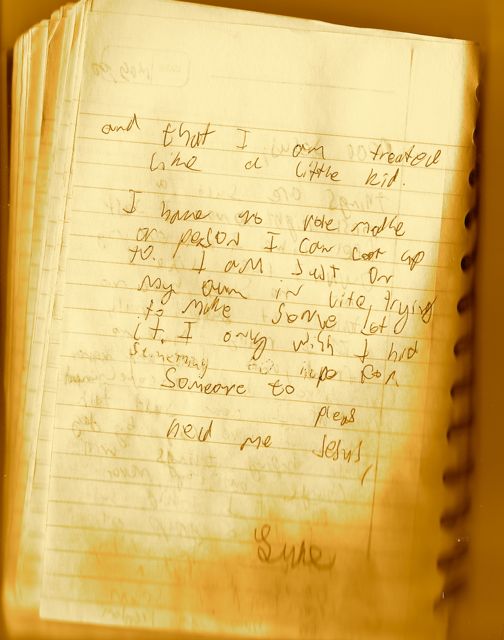 and that I am treated
like a little kid.
I have no role modle
or person I can look up
to. I am Just on
my own in life, trying
to make some of
it. I only wish I had
someway
Someone to
pleas
help me Jesus,